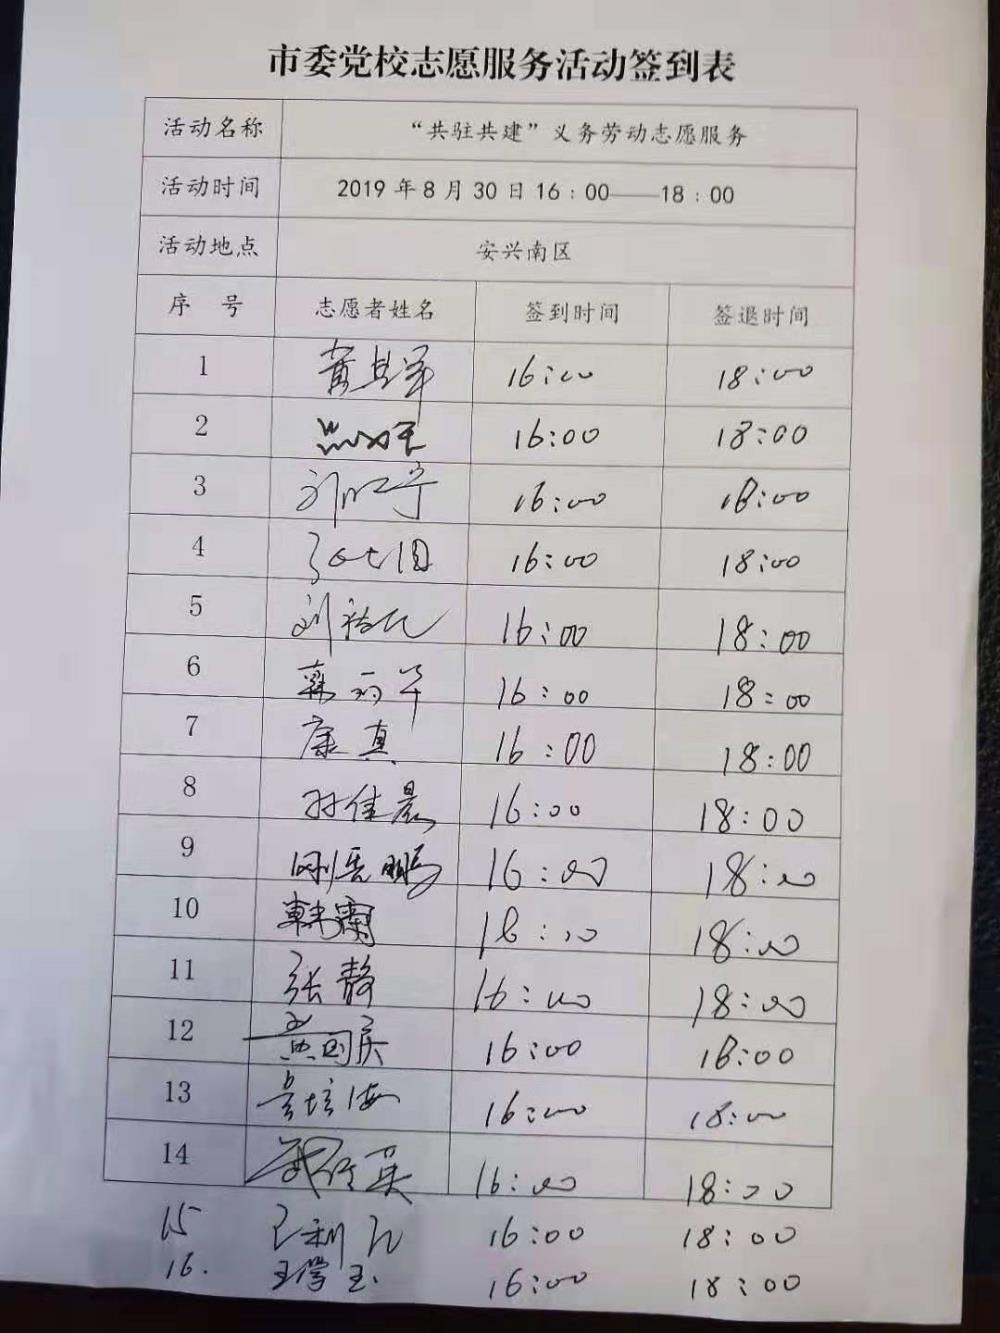 市委党校志愿服务活动签到表
活动名称 “共驻共建”义务劳动志愿服务
活动时间 2019年8月30日16:00——18:00
活动地点 安兴南区
序 号 志愿者姓名 签到时间 签退时间
1 16:00 18:00
2 16:00 18:00
3 16:00 18:00
4 16:00 18:00
5 16:00 18:00
6 16:00 18:00
7 康真 16:00 18:00
8 孙佳晨 16:00 18:00
9 16:00 18:00
10 韩霜 18:00 18:00
11 张静 16:00 18:00
12 黄国庆 16:00 18:00
13 16:00 18:00
14 16:00 18:00
15 16:00 18:00
16. 王学玉 16:00 18:00